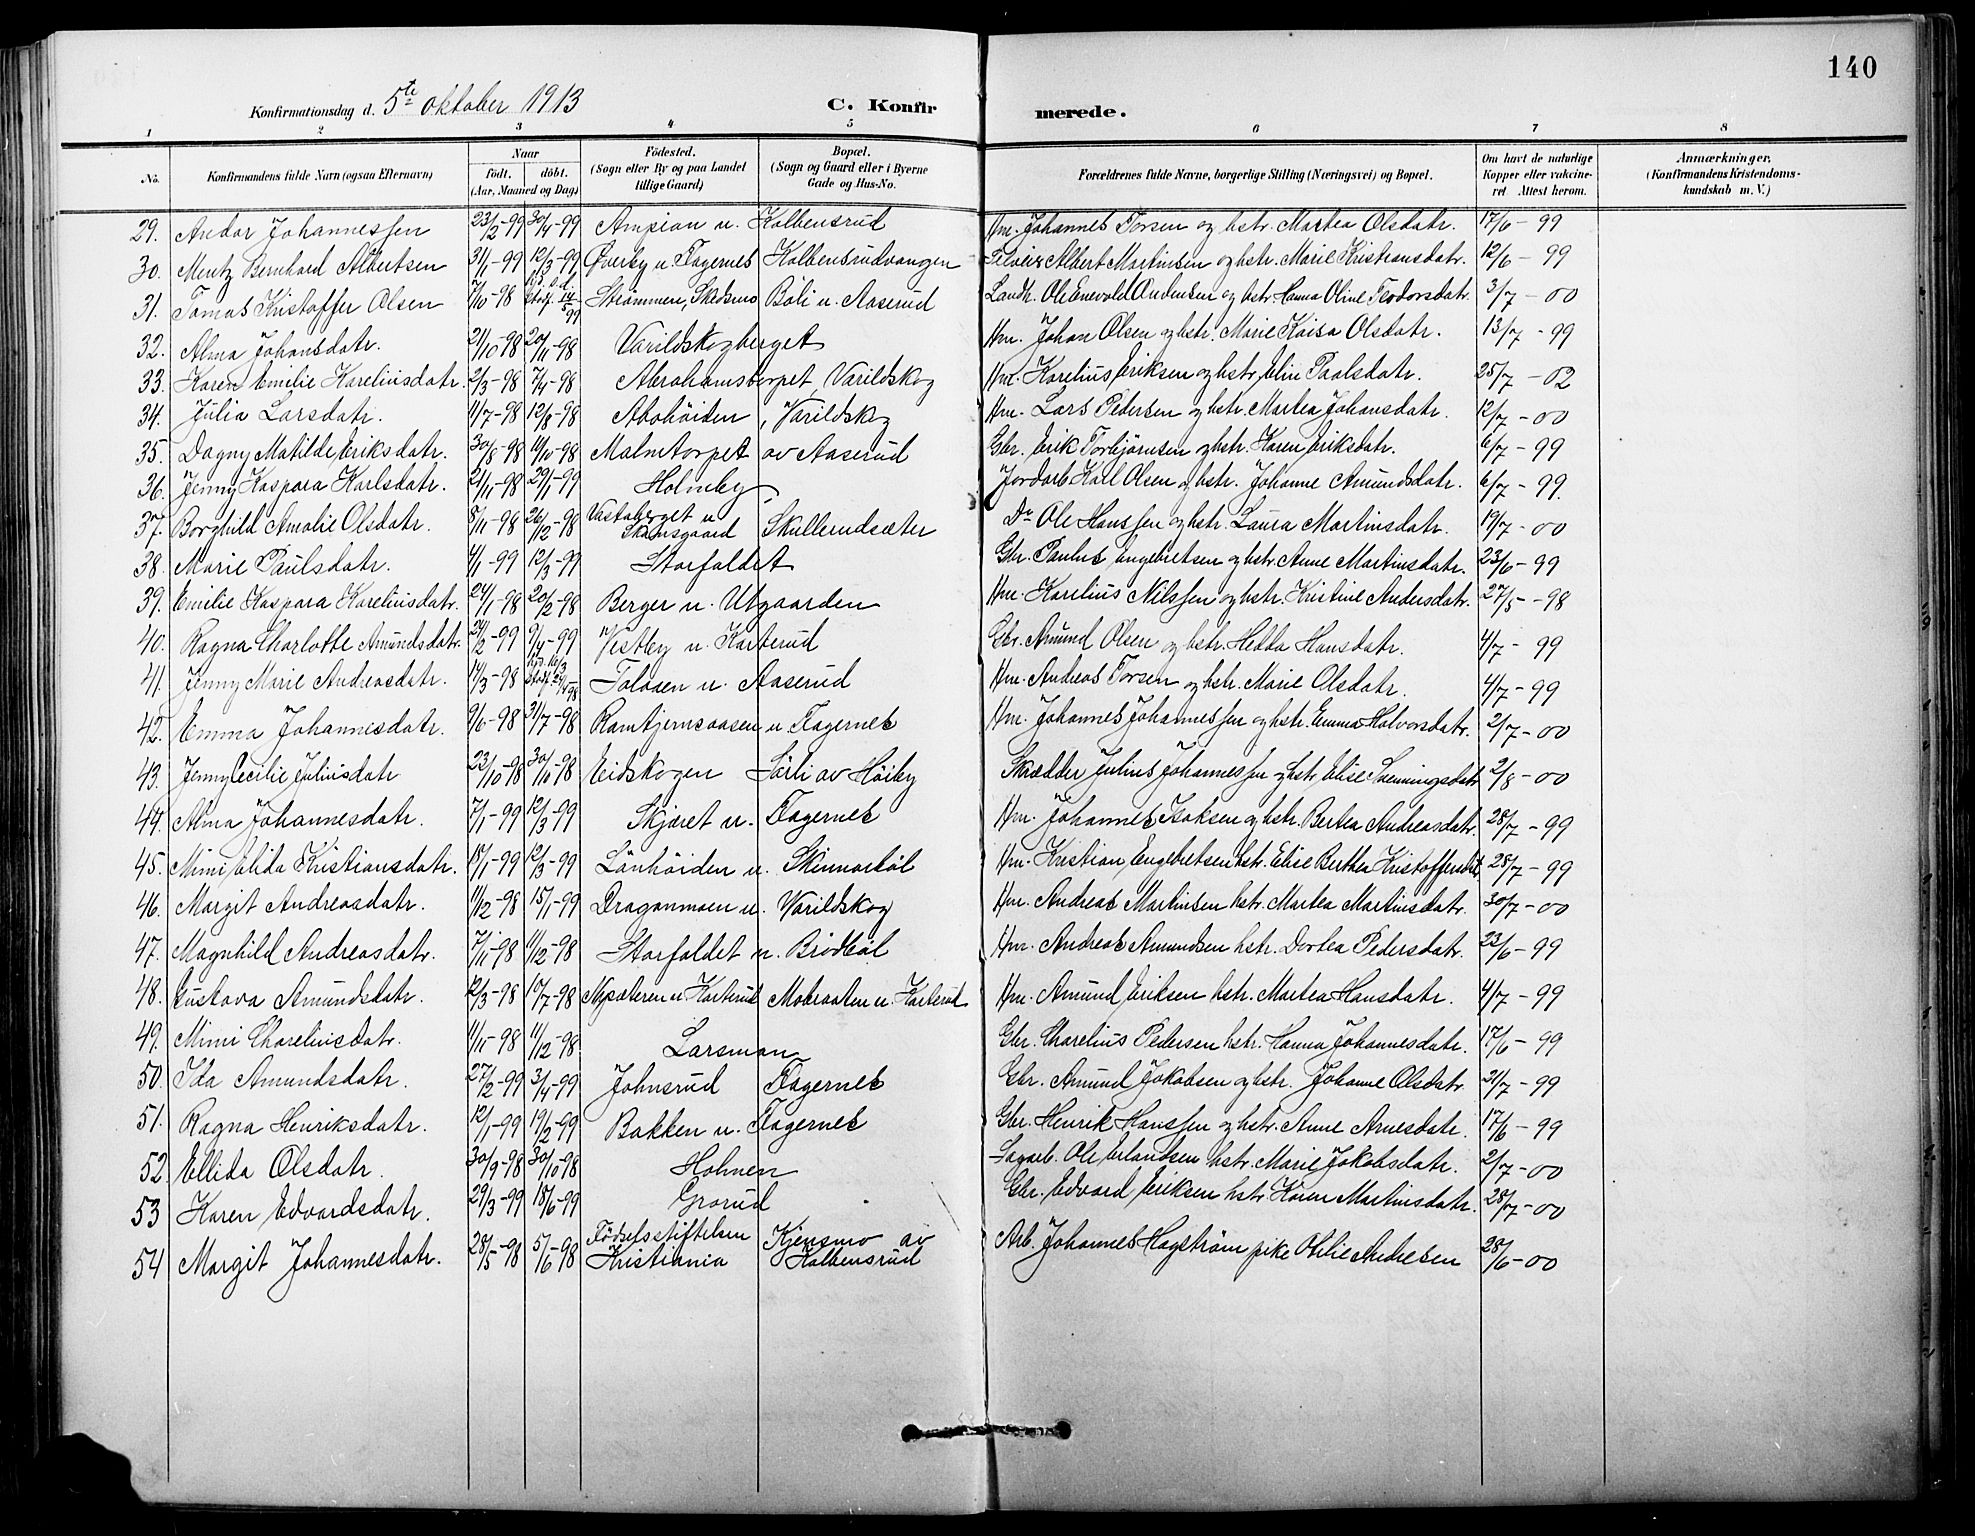 140
Konfirmationsdag d. 5te oktober 1913 C. Konfirmerede.
1 2 3 4 5 6 7 8
No. Konfirmandens fulde Navn (ogsaa Efternavn) Naar født. døbt. (Aar, Maaned og Dag) Fødested. (Sogn eller By og paa Landet tillige Gaard) Bopæl. (Sogn og Gaard eller i Byerne Gade og Hus-No. Forældrenes fulde Navne, borgerlige Stilling (Næringsvei) og Bopæl. Om havt de naturlige Kopper eller vakcineret Attest herom. Anmærkninger, (Konfirmandens Kristendomskundskab m. V.)
29. Andor Johannessen 23/2-99 30/4-99 Ampian u. Kolbensrud Hm. Johannes Torsen og hstr. Martea Olsdatr. 17/6-99
30. Mentz Bernhard Albertsen 31/1-99 12/3-99 Øverby u. Fagernes Kolbensrudvangen Albert Martinsen og hstr. Marie Kristiansdatr. 12/6-99
31. Tomas Kristoffer Olsen 7/10-98 Strømmen, Skedsmo Bøli u. Aaserud Landh. Ole Enevold og hstr. Hanna Oline Teodorsdatr. 3/7-00
32. Alma Johansdatr. 21/10-98 20/11-98 Varildskogberget Hm. Johan Olsen og hstr. Marie Kaisa Olsdatr. 13/7-99
33. Karen Emilie Kareliusdatr. 2/3-98 7/4-98 Abrahamstorpet, Varildskog Hm. Karelius Eriksen og hstr. Elin Paalsdatr. 25/7-02
34. Julia Larsdatr. 11/7-98 12/8-98 Abohöiden, Varildskog Hm. Lars Pedersen og hstr. Martea Johansdatr. 12/7-00
35. Dagny Matilde Eriksdatr. 30/8-98 16/10-98 Malmtorpet av Aaserud Gbr. Erik Torbjørnsen og hstr. Karen Eriksdatr. 6/7-99
36. Jenny Kaspara Karlsdatr. 21/11-98 29/1-99 Holmby Jordarb. Karl Olsen og hstr. Johanne Amundsdatr. 6/7-99.
37. Borghild Amalie Olsdatr. 8/11-98 26/12-98 Vestaberget u Skansgaard Skullerudsæter Do Ole Hanssen og hstr. Laura Martinsdatr. 19/7-00
38. Marie Paulsdatr. 4/1-99 12/3-99 Storfaldet Gbr. Paulus Engebretsen og hstr. Anne Martinsdatr. 23/6-99
39. Emilie Kaspara Kareliusdatr. 24/1-98 20/2-98 Berger u. Utgaarden Hm. Karelius Nilssen og hstr. Kristine Andersdatr. 27/5-98
40. Ragna Charlotte Amundsdatr. 24/2-99 9/4-99 Vestby u. Karterud Gbr. Amund Olsen og hstr. Hedda Hansdatr. 4/7-99
41. Jenny Marie Andreasdatr. 14/3-98 Tolosen u. Aaserud Hm. Andreas Torsen og hstr. Marie Olsdatr. 4/7-99
42. Emma Johannesdatr. 9/6-98 31/7-98 Ramtjernsaasen u Fagernes Hm. Johannes Johannessen og hstr. Emma Halvorsdatr. 2/7-00
43. Jenny Cecilie Juliusdatr 23/10-98 30/11-98 Eidskogen Sörli av Höiby Skrædder Julius Johannessen og hstr. Elise Svenningsdatr 2/8-00
44. Alma Johannesdatr. 7/1-99 12/3-99 Skjæret u. Fagernes Hm. Johannes Isaksen og hstr. Bertea Andreasdatr. 28/7-99
45. Mimi Elida Kristiansdatr. 18/1-99 12/3-99 Lönhöiden u. Skinnarböl Hm. Kristian Engebretsen hstr. Elise Berthea 28/7-99
46. Margit Andreasdatr. 11/12-98 15/1-99 Dragonmoen u. Varildskog Hm. Andreas Martinsen hstr. Martea Martinsdatr. 30/7-00
47. Magnhild Andreasdatr. 7/11-98 11/12-98 Storfaldet u. Brödböl Hm. Andreas Amundsen hstr. Dortea Pedersdatr. 23/6-99
48. Gustava Amundsdatr. 12/3-98 17/7-98 Nysæteren u Karterud Mobraaten u. Karterud Hm. Amund Eriksen hstr. Martea Hansdatr. 4/7-99
49. Mimi Chareliusdatr. 11/11-98 11/12-98 Larsmon Gbr. Charelius Pedersen hstr. Hanna Johannesdatr. 17/6-99
50. Ida Amundsdatr. 27/2-99 3/4-99 Johnsrud Fagernes Gbr. Amund Jakobsen og hstr. Johanne Olsdatr 31/7-99
51. Ragna Henriksdatr. 12/1-99 19/2-99 Bakken u. Fagernes Gbr. Henrik Hanssen og hstr. Anne Arnesdatr. 17/6-99
52. Ellida Olsdatr. 30/9-98 30/10-98 Holmen Sagarb. Ole Erlandsen hstr. Marie Jakobsdatr. 2/7-00
53 Karen Edvardsdatr. 29/3-99 18/6-99 Grorud Gbr. Edvard Eriksen hstr. Karen Martinsdatr. 28/7-00
54 Margit Johannesdatr. 28/5-98 5/6-98 Födselsstiftelsen Kristiania Kjensmo av Kolbensrud Arb. Johannes Hagström pike Otilie Andresen 28/6-00